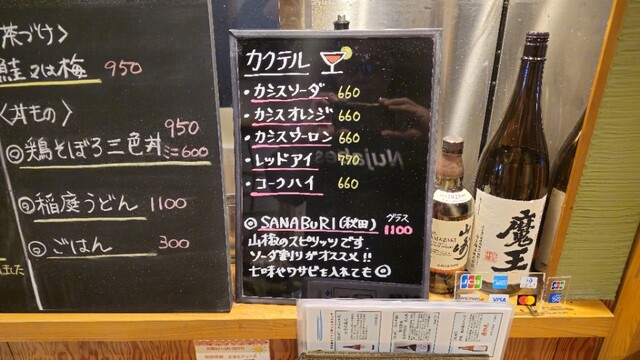 茶づけ〉
鮭又は梅 950
〈丼もの〉
950
◎鶏そぼろ三色丼 ミニ600
稲庭うどん 1100
ごはん 300
カクテル
・カシスソーダ 660
・カシスオレンジ 660
・カシスウーロン 660
・レッドアイ 770
・コークハイ 660
◎SANABURI(秋田) グラス 1100
山椒のスピリッツです
ソーダ割りがオススメ!!
七味やワサビを入れても◎
山崎
魔王
JCB
VISA